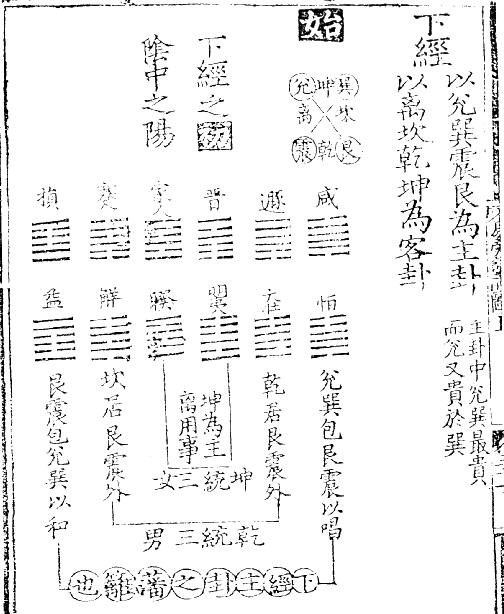 下經
以兊巽震艮為主卦
以离坎乾坤為客卦
主卦中兊巽最貴
而兊又貴於巽
始
巽坤兊
坎离
艮乾震
下經之初
陰中之陽
咸
遯
晉
家人
蹇
損
恒
大壯
明夷
睽
解
益
兊巽包艮震以唱
乾居艮震外
坤為主
离用事
坎居艮震外
艮震包兊巽以和
坤統三女
乾統三男
下經主卦之藩籬也